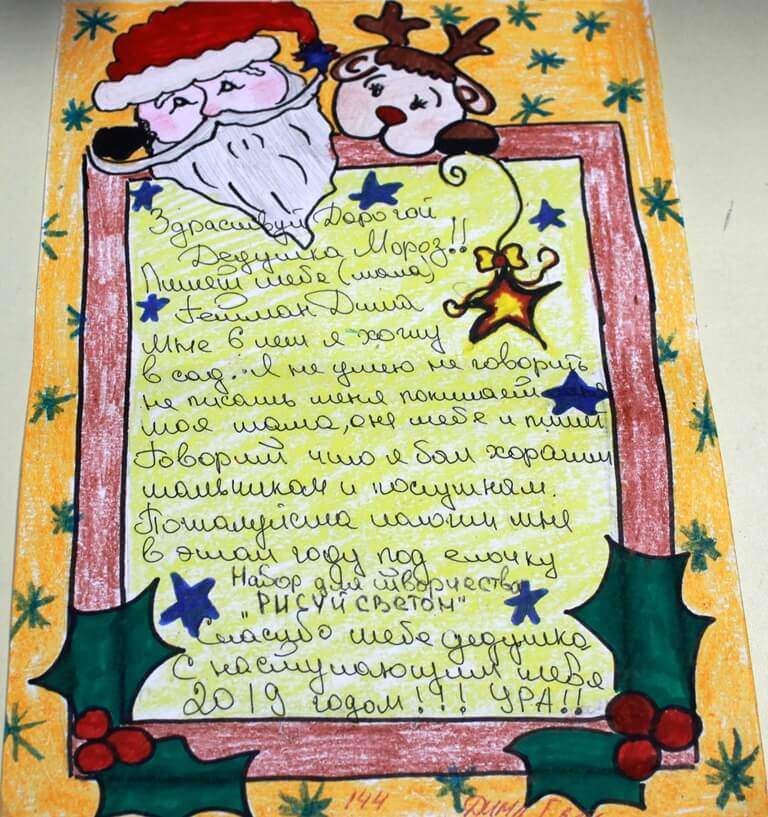 Здраствуй Дорогой
Дедушка Мороз!!
Пишет тебе (мама)
Гейман Дима
Мне 6 лет я хожу
в сад. Я не умею не говорить
не писать меня понимает
моя мама, она тебе и пишет
Говорит что я был хорошим
мальчиком и послушным.
Пожалуйста положи мне
в этом году под елочку
Набор для творчества
"РИСУЙ СВЕТОМ"
Спасибо тебе дедушка
С наступающим тебя
2019 годом!!! УРА!!
144 Дима Г. 6 л.